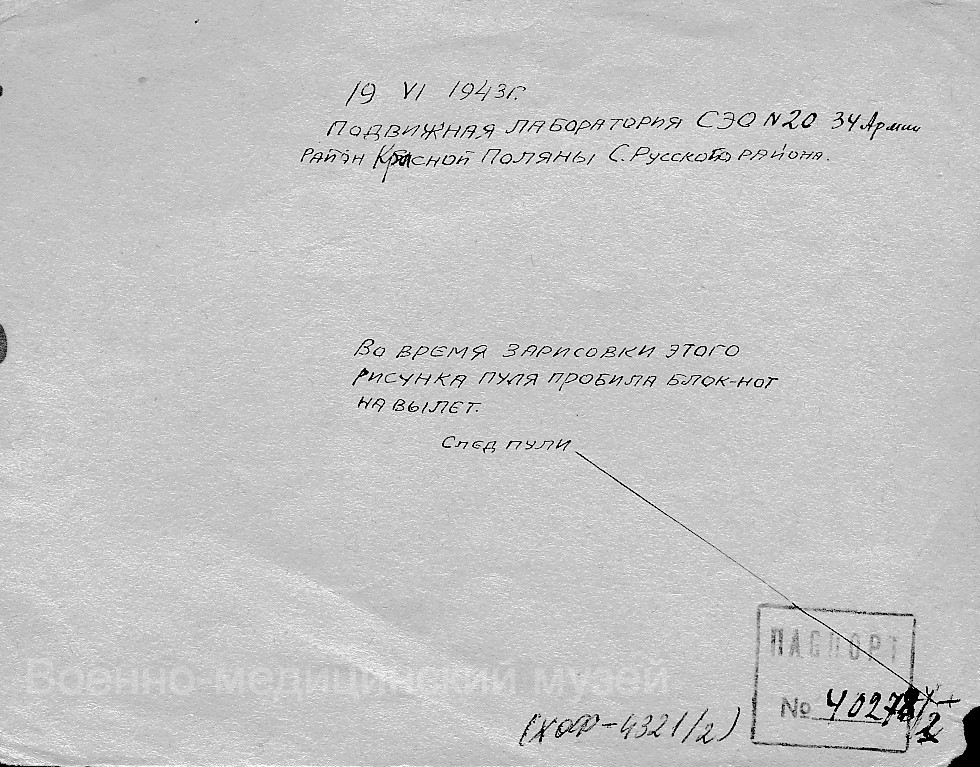 19 VI 1943г.
Подвижная лаборатория СЭО N20 34 Армии
район Красной Поляны С. Русского района.
Во время зарисовки этого
рисунка пуля пробила блок-нот
на вылет.
След пули
ПАСПОРТ
№ 40278/2
Военно-медицинский музей
(ХОФ-4321/2)